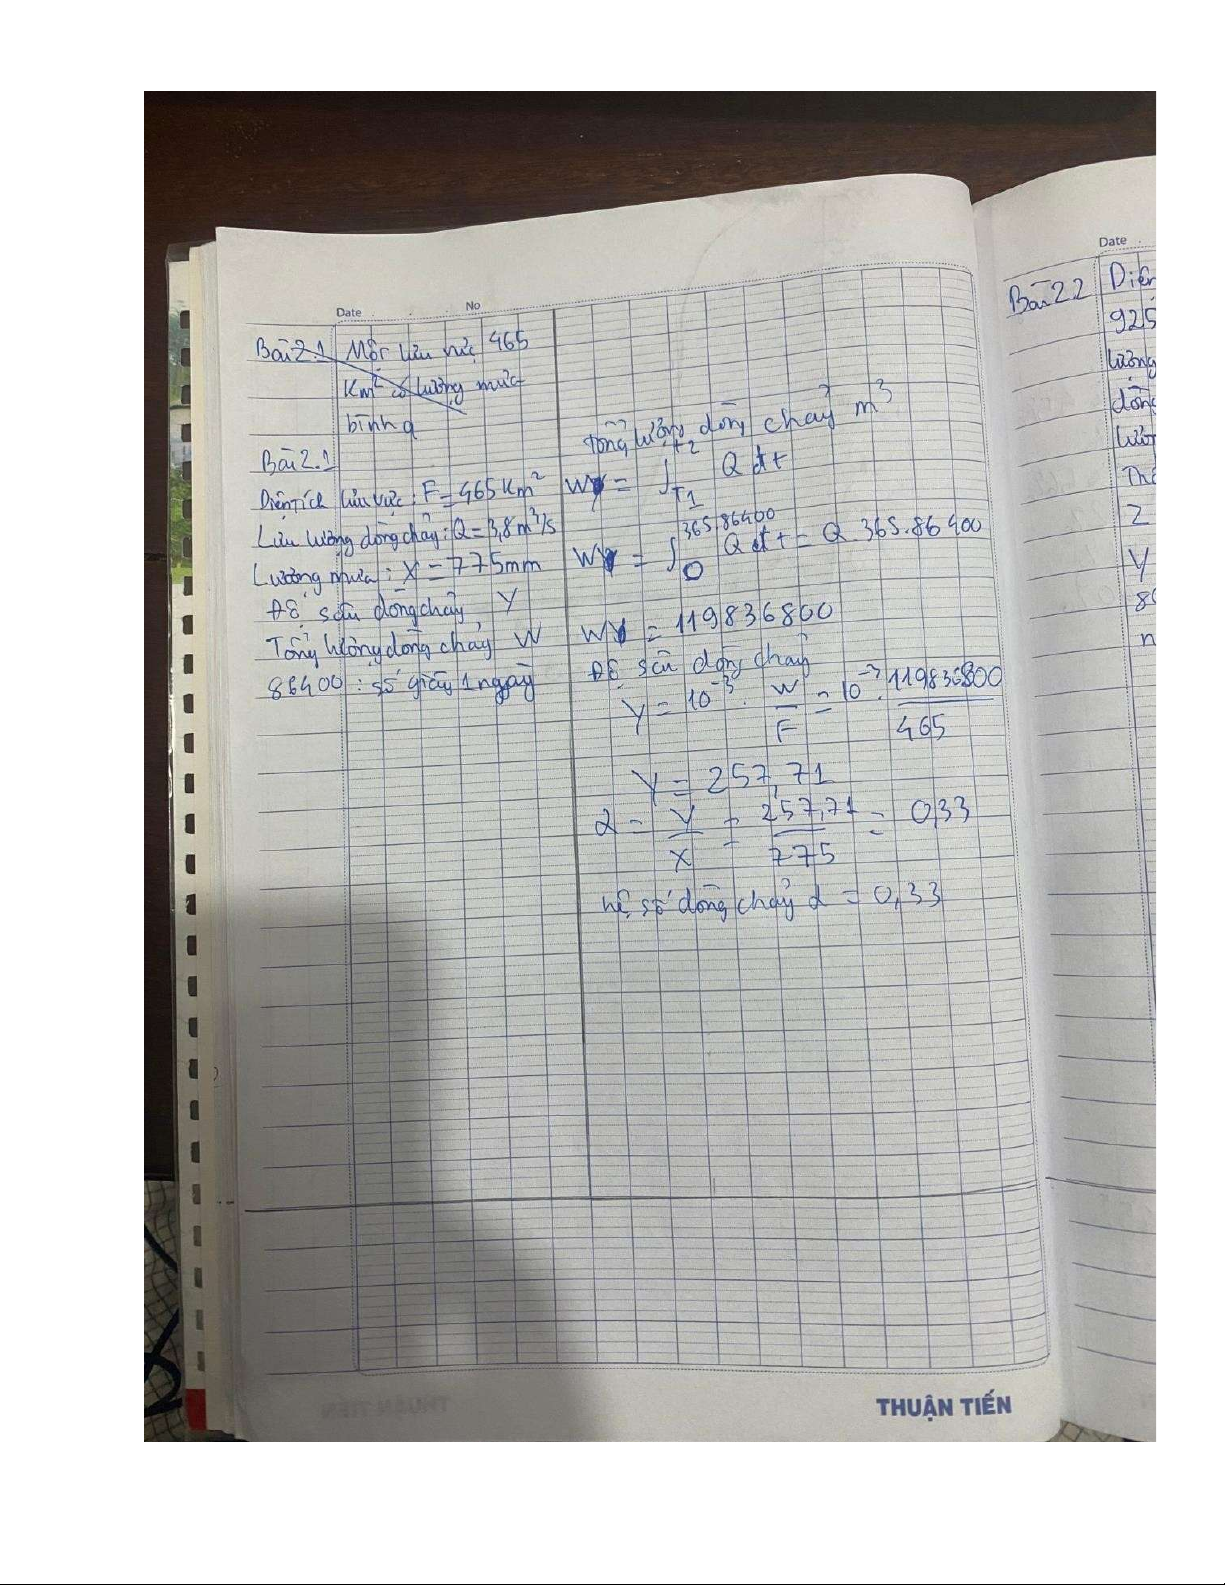 Date No
Bài 2.1 Một lưu vực 465
Km² có lượng mưa
bình q
Bài 2.1
Diện tích lưu vực: F = 465 Km²
Lưu lượng dòng chảy: Q = 3,8 m³/s
Lượng mưa: X = 775mm
Độ sâu dòng chảy Y
Tổng lượng dòng chảy W
86400: số giây 1 ngày
Tổng lượng dòng chảy m³
W = ∫ T1 T2 Q dt
W = ∫ 0 365.86400 Q dt = Q. 365.86400
W = 119836800
Độ sâu dòng chảy
Y = 10⁻³ . W/F = 10⁻³ . 119836800/465
Y = 257,71
α = Y/X = 257,71/775 = 0,33
hệ số dòng chảy α = 0,33
THUẬN TIẾN
Date
Bài 2.2 Diện
925
lượng
dòng
lượ
Z
Y
n